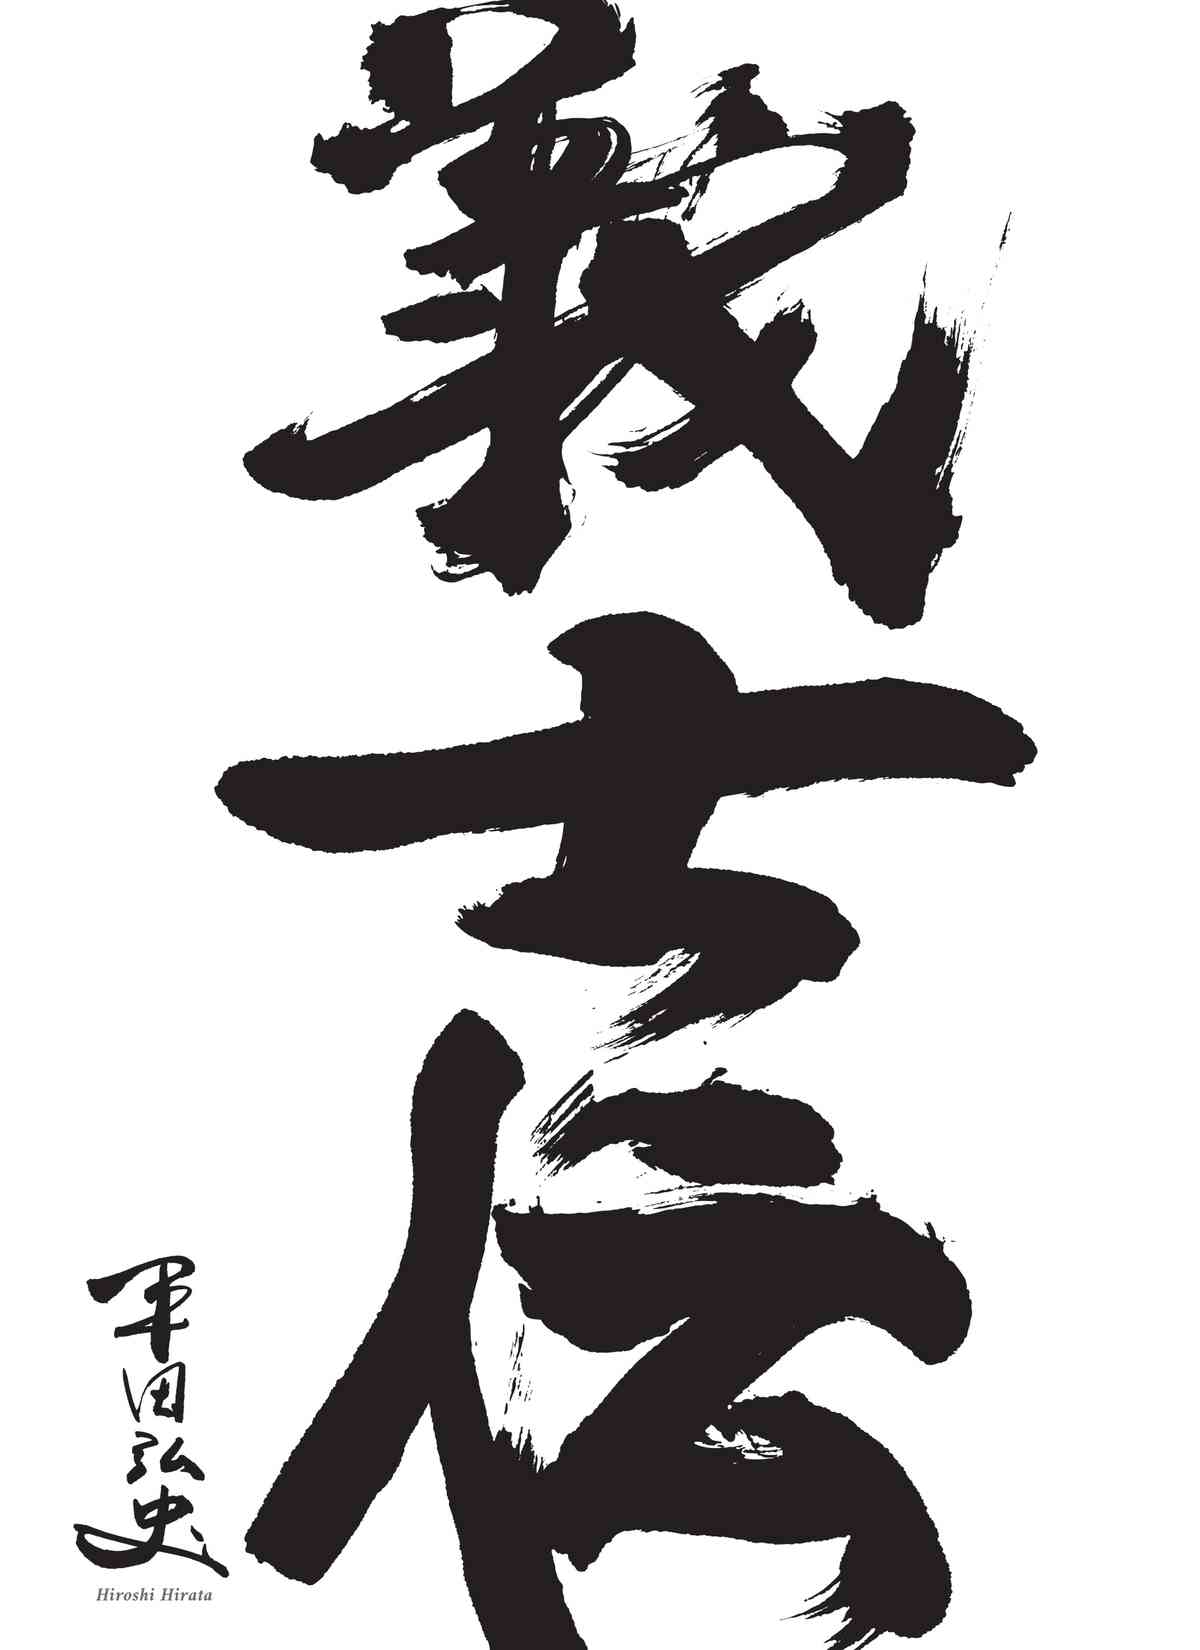 義士伝
平田弘史
Hiroshi Hirata